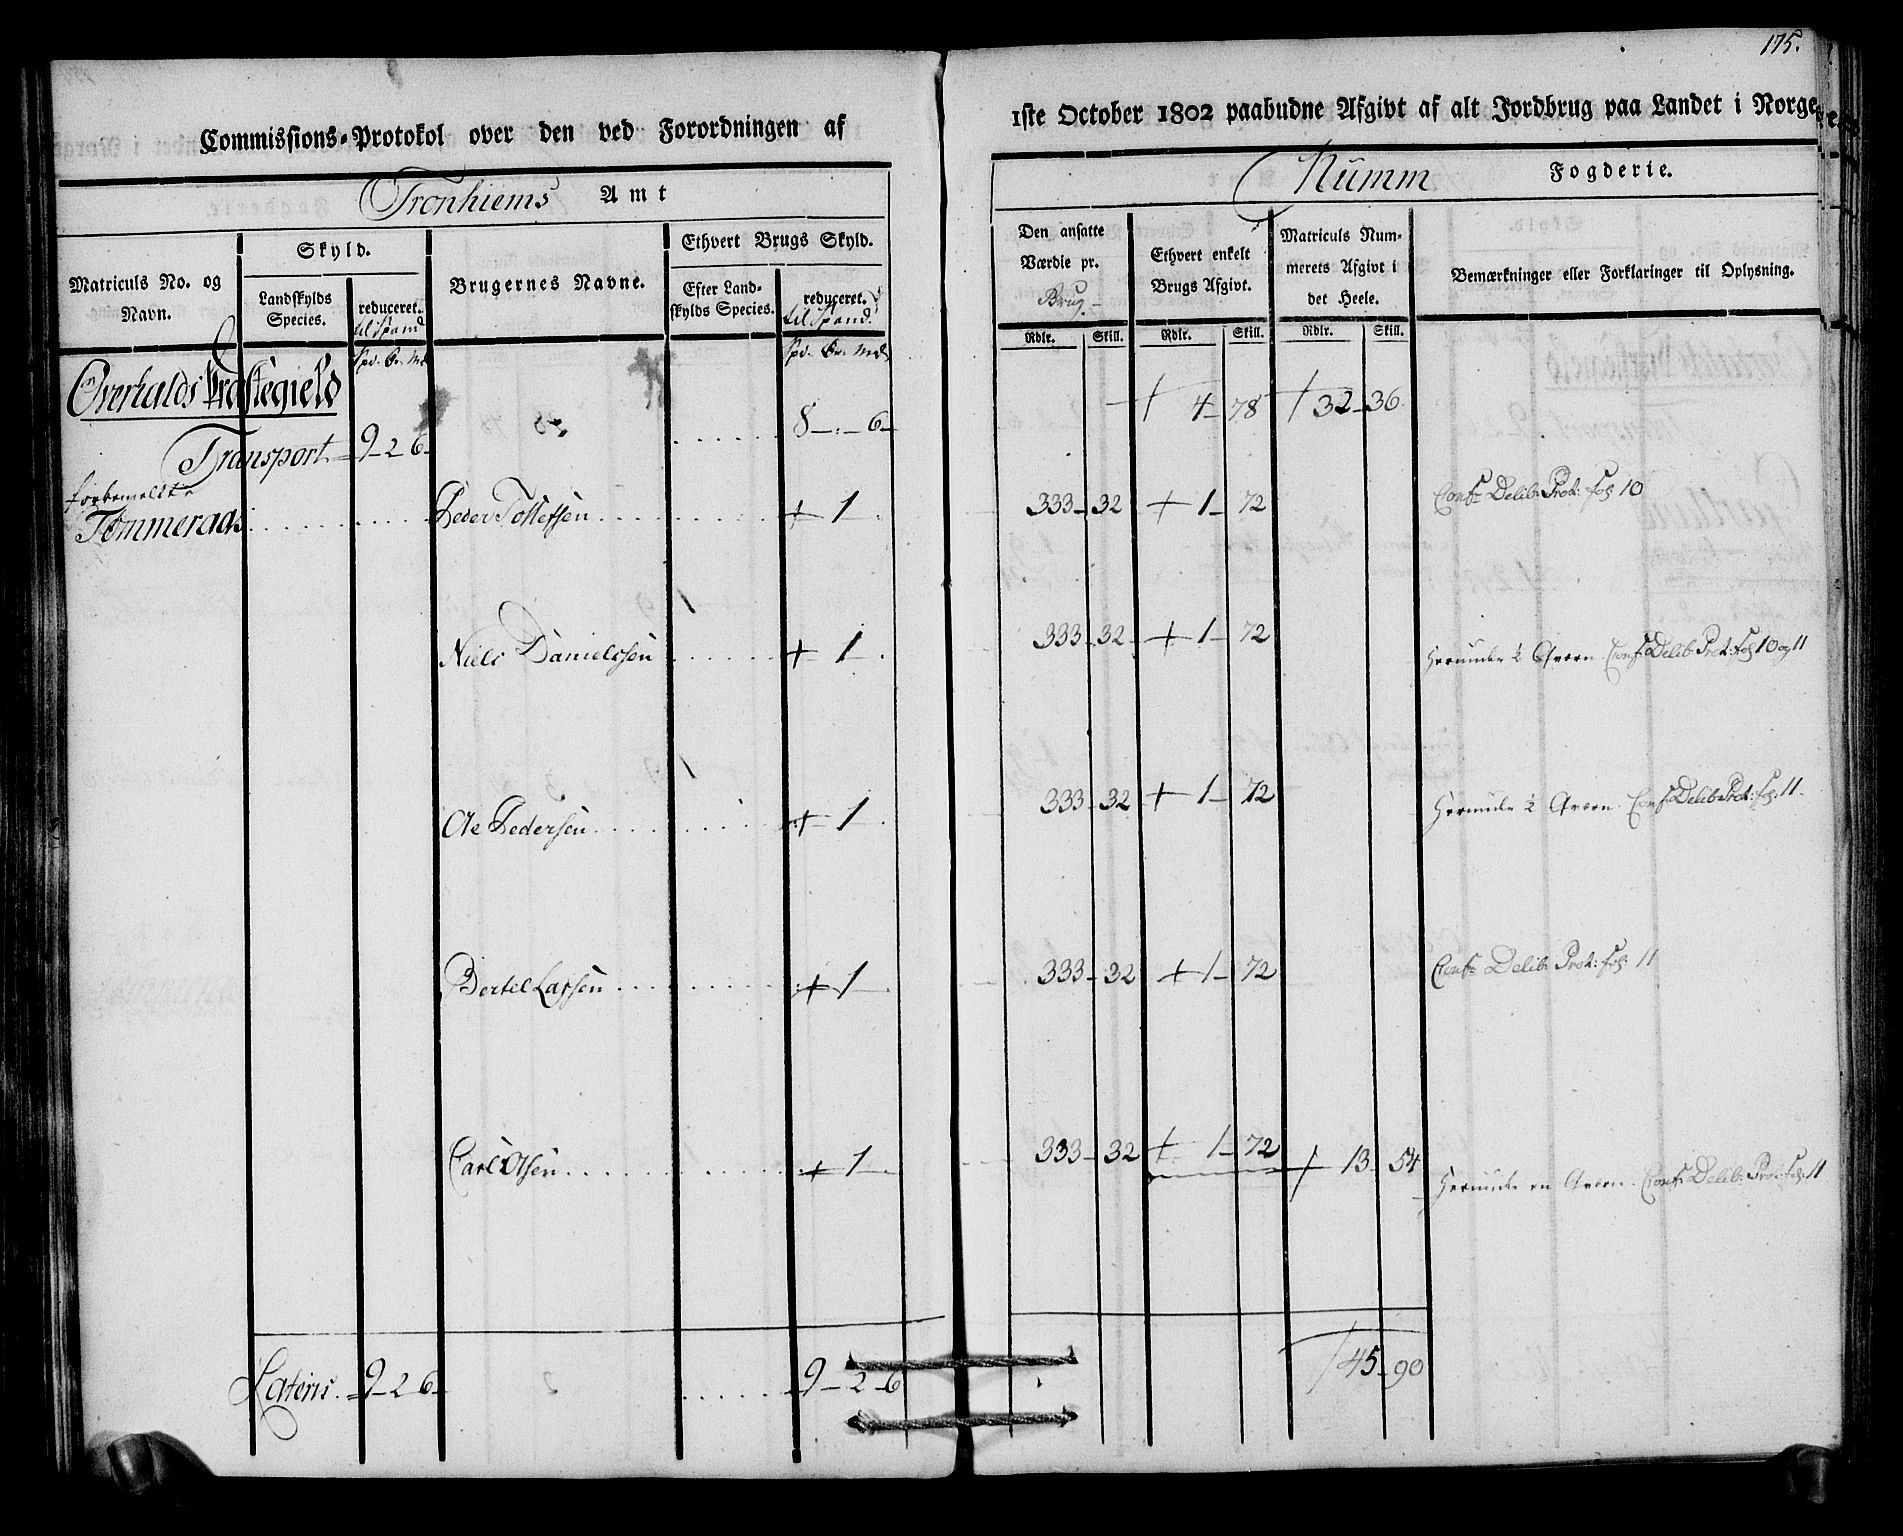 175.
Commissions-Protokol over den ved Forordningen af 1ste October 1802 paabudne Afgivt af alt Jordbrug paa Landet i Norge.
Tronhiems Amt
Numm Fogderie.
Matriculs No. og Navn.
Skyld.
Landskylds Species.
reduceret. til Spand
Spd. Ør. Mk
Brugernes Navne.
Ethvert Brugs Skyld.
Efter Landskylds Species.
reduceret. til Spand.
Spd. Ør. Mk
Den ansatte Værdie pr. Brug
Rdlr. Skill.
Ethvert enkelt Brugs Afgivt.
Rdlr. Skill.
Matriculs Nummerets Afgivt i det Heele.
Rdlr. Skill.
Bemærkninger eller Forklaringer til Oplysning.
Overhalds Præstegield
Transport 9 - 2 6 8 - . - 6 4 - 78 32 - 36
forbemeldte
Tømmeraas Peder Tollefsen + 1 333 - 32 + 1 - 72 Confr Delib: Prot: fol: 10
Niels Danielssen + 1 333 - 32 + 1 - 72 Herunder 2 Qværn Conf: Delib: Prot: fol: 10 og 11
Ole Pedersen + 1 333 - 32 + 1 - 72 Herunder 2 Qværn. Conf: Delib: Prot: fol: 11
Bertel Lassen + 1 333 - 32 + 1 - 72 Confr Delib: Prot: fol: 11
Carl Olsen + 1 333 - 32 + 1 - 72 13 - 54 Herunder en Qværn. Conf: Delib: Prot: fol: 11
Lateris 9 - 2 6 9 - 2 - 6 45 - 90